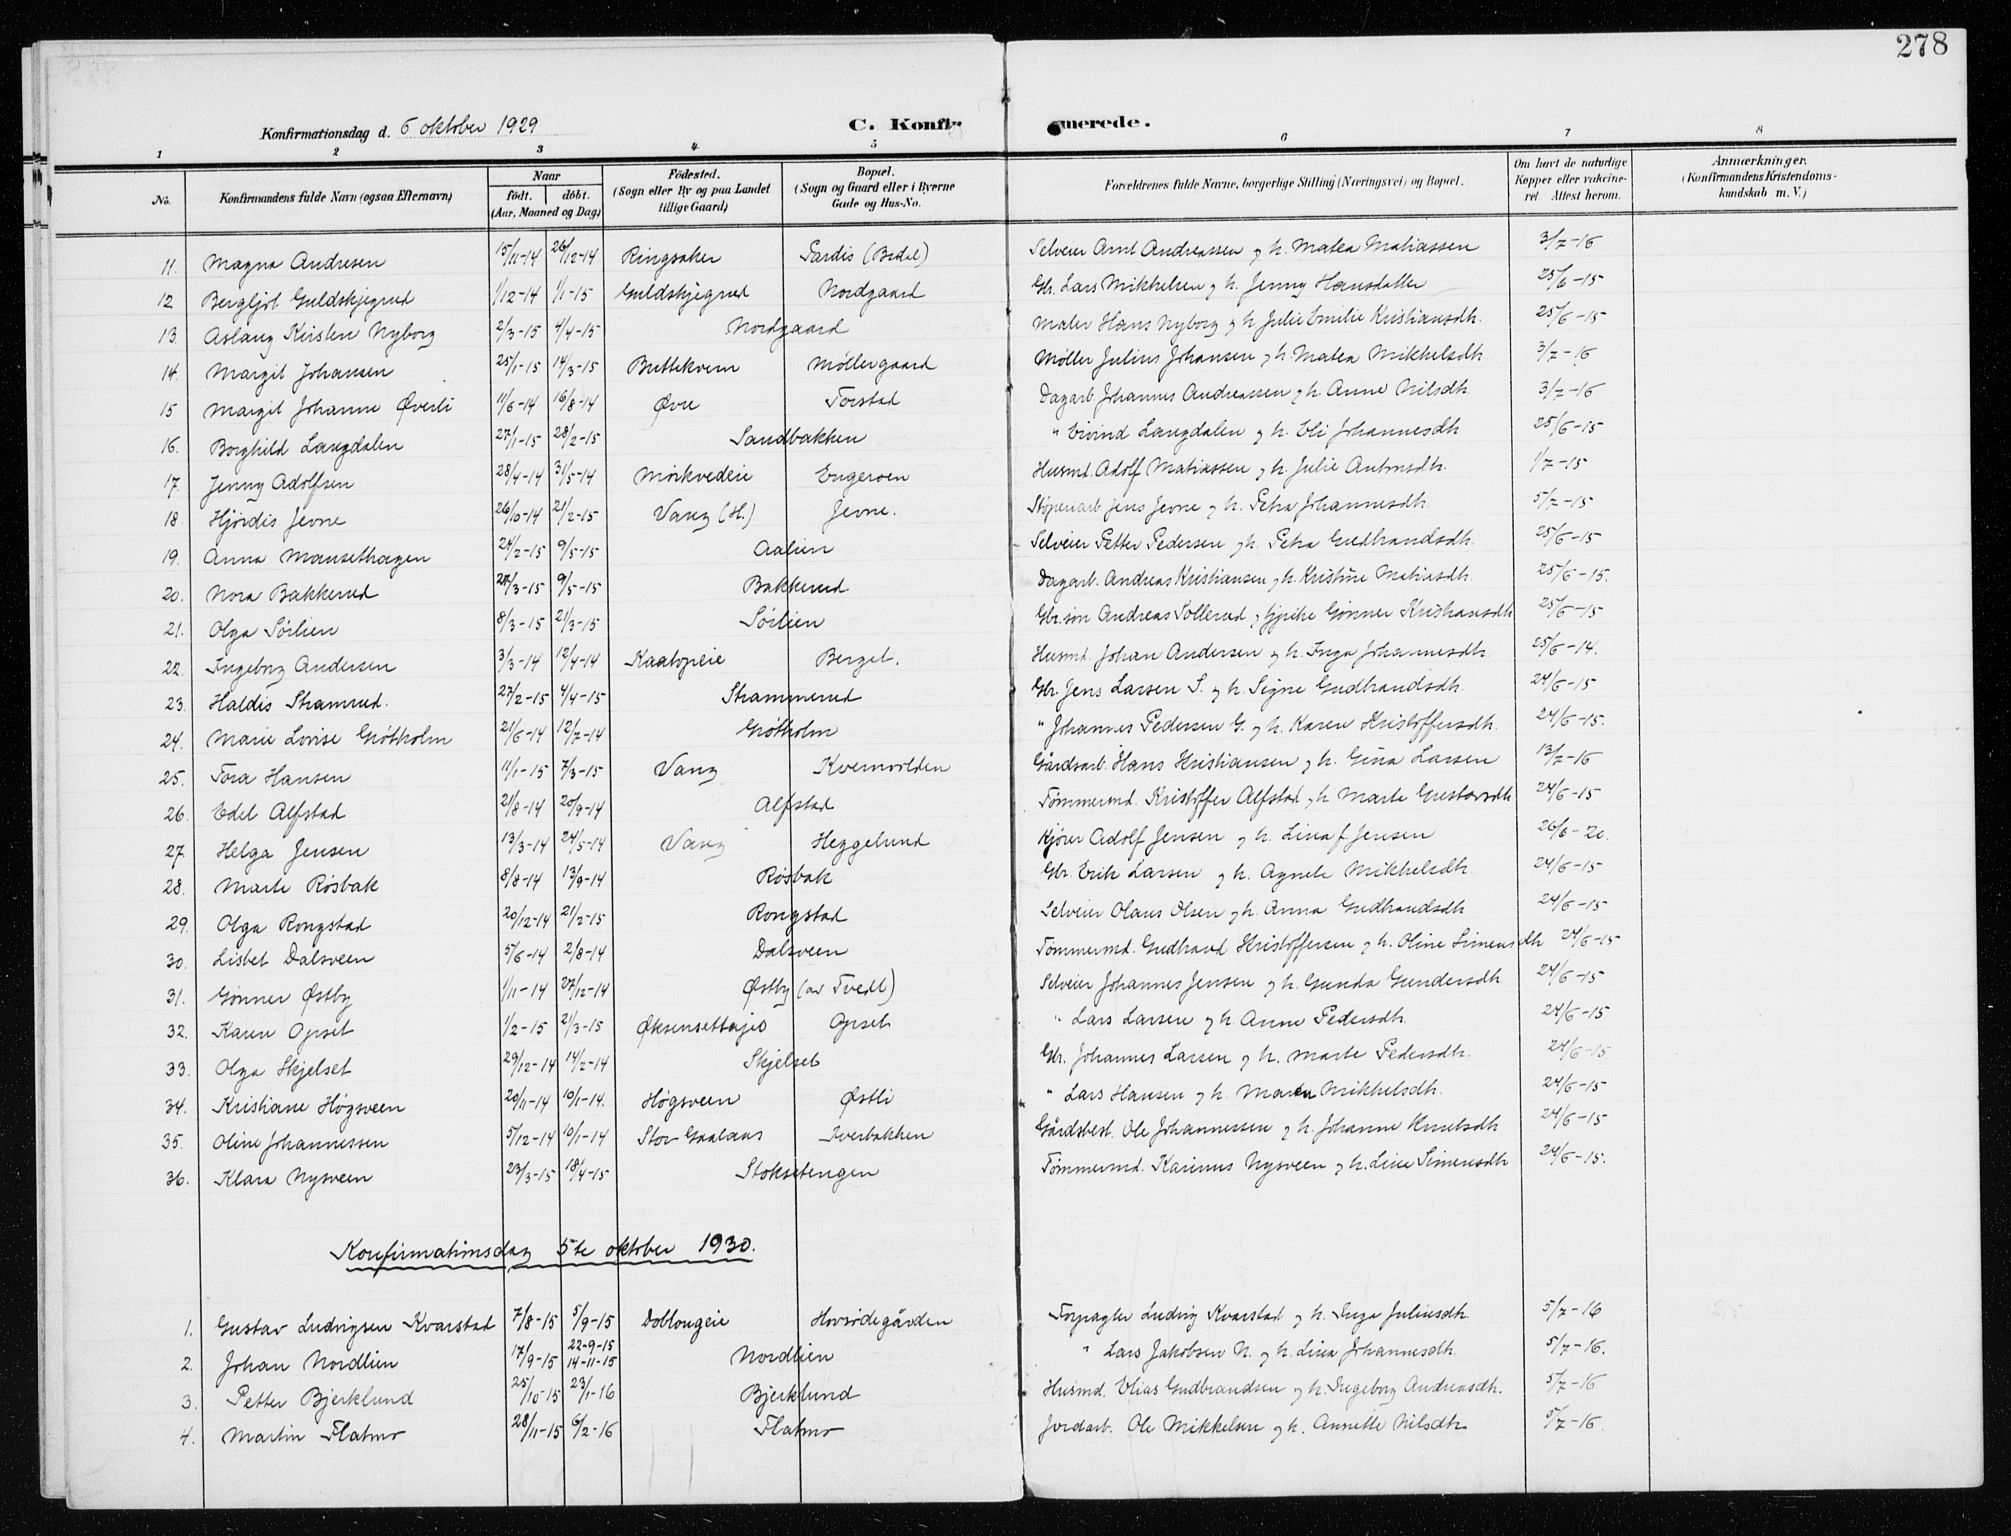 278
Konfirmationsdag d. 6 oktober 1929 C. Konfirmerede.
1 2 3 4 5 6 7 8
No. Konfirmandens fulde Navn (ogsaa Efternavn) Naar födt. döbt. (Aar, Maaned og Dag) Födested. (Sogn eller By og paa Landet tillige Gaard) Bopæl. (Sogn og Gaard eller i Byerne Gade og Hus-No. Forældrenes fulde Navne, borgerlige Stilling (Næringsvei) og Bopæl. Om havt de naturlige Kopper eller vakcineret. Attest herom. Anmærkninger. (Konfirmandens Kristendomskundskab m. V.)
11. Magna Andresen 15/11-14 26/12-14 Ringsaker Sardis (Brdal) Selveier Arnt Andreassen og h. Matea Matiassen 3/7-16
12 Bergljot Guldskjegrud 1/12-14 1/1-15 Guldskjegrud Nordgaard Gbr. Lars Mikkelsen og h. Jenny Hansdatter 25/6-15
13. Aslaug Kirsten Nyborg 2/3-15 4/4-15 Nordgaard Maler Hans Nyborg og h Julie Emilie Kristiansdh. 25/6-15
14. Margit Johansen 25/1-15 14/3-15 Buttekvern Möllergaard Møller Julius Johansen og h. Matea Mikkelsdh 3/7-16
15 Margit Johanne Överli 11/6-14 16/8-14 Øvre Torstad Dagarb. Johannes Andreassen og h. Anne Nilsdh. 3/7-16
16. Borghild Langdalen 27/1-15 28/2-15 Sandbakken " Eivind Langdalen og h. Eli Johannesdh 25/6-15
17. Jenny Adolfsen 28/4-14 31/5-14 Mörkvedeie Engeroen Husmd. Adolf Matiassen og h. Julie Antonsdh. 1/7-15
18. Hjördis Jevne 26/10-14 21/2-15 Vang (H.) Jevne. Stöperiarb Jens Jevne og h. Petra Johannesdh 5/7-15
19. Anna Mansethagen 24/2-15 9/5-15 Aalien Selveier Petter Pedersen og h. Petra Gudbrandsdh. 25/6-15
20. Nora Bakkerud 27/3-15 9/5-15 Bakkerud Dagarb. Andreas Kristiansen og h. Kristine Matiasdh. 25/6-15.
21. Olga Sörlien 8/3-15 2/3-15 Sörlien Gbr.sön Andreas Sollerud og Gjerike Gönner Kristiansdh 25/6-15
22. Ingeborg Andersen 3/3-14 12/4-14 Kaatopeie Berget. Husmd. Johan Andersen og h. Inga Johannesdh. 25/6-14.
23. Haldis Stramrud. 27/2-15 4/4-15 Strammerud Gbr. Jens Larsen S. og h. Signe Gudbrandsdh. 24/6-15
24. Marie Lovise Grötholm 21/6-14 12/7-14 Grötholm " Johannes Pedersen G. og h. Karen Kristoffersdh. 24/6-15.
25. Tora Hansen 11/1-15 7/3-15 Vang Kvernvolden Gårdsarb. Hans Kristiansen og h. Gina Larsen 13/7-16
26. Edel Alfstad 21/8-14 20/9-14 Alfstad Tömmermd. Kristoffer Alfstad og h Marte Gustavsdh 24/6-15
27 Helga Jensen 13/3-14 24/5-14 Vang Heggelund Kjörer Adolf Jensen og h. Lina f Jensen 26/6-20.
28. Marte Rösbak 8/8-14 13/9-14 Rösbak Gbr. Erik Larsen og h. Agnete Mikkelsdh. 24/6-15
29. Olga Rongstad 20/12-14 21/2-15 Rongstad Selveier Olaus Olsen og h. Anna Gudbrandsdh 24/6-15
30. Lisbet Dalsveen 5/6-14 2/8-14 Dalsveen Tömmermd. Gudbrand Kristoffersen og h. Oline Simensdh 24/6-15
31. Gönner Østby 1/11-14 27/12-14 Østby (av Tvedt) Selveier Johannes Jensen og h. Gunda Gundersdh 24/6-15
32. Karen Opset 1/2-15 21/3-15 Øksensethagio Opset " Lars Larsen og h. Anne Pedersdh. 24/6-15
33. Olga Skjelset 29/12-14 14/2-14 Skjelset Gbr. Johannes Larsen og h. Marte Pedersdh. 24/6-15
34. Kristiane Högsveen 20/11-14 10/1-14. Högsveen Østli " Lars Hansen og h. Maren Mikkelsdh. 24/6-15
35. Oline Johannessen 5/12-14 10/1-14 Stor Gaalaas Iverbakken Gårdsbest. Ole Johannessen og h. Johanne Knutsdh 24/6-15
36. Klara Nysveen 23/3-15 18/4-15 Stoksetengen Tömmermd. Karinus Nysveen og h. Line Simensdh 24/6-15.
Konfirmationsdag 5te oktober 1930.
1. Gustav Ludvigsen Kvarstad 7/8-15 5/9-15 Doblougeie Hovrödegården Forpagter Ludvig Kvarstad og h. Inga Juliusdh. 5/7-16
2. Johan Nordlien 17/9-15 22-9-15 14-11-15 Nordlien " Lars Jakobsen N. og h. Lina Johannesdh. 5/7-16.
3. Petter Bjerklund 25/10-15 23/1-16 Bjerklund Husmd. Elias Gudbrandsen og h. Ingeborg Andreasdh. 5/7-16
4. Martin Flatmo 28/11-15 6/2-16 Flatmo Jordarb. Ole Mikkelsen og h. Annette Nilsdh 5/7-16.